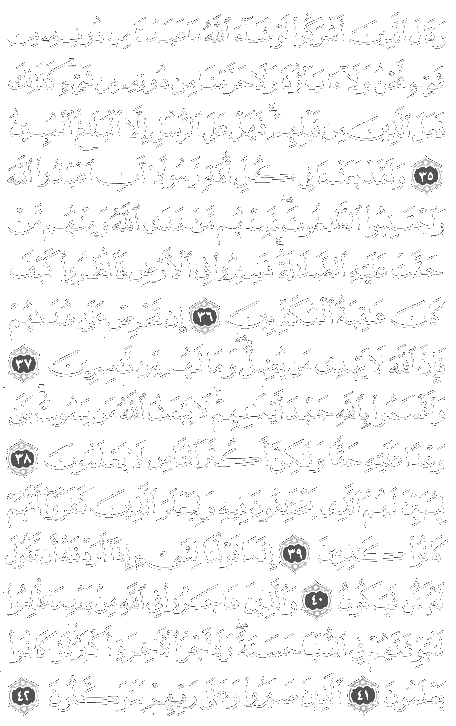 وَقَالَ الَّذِينَ أَشْرَكُوا لَوْ شَاءَ اللَّهُ مَا عَبَدْنَا مِن دُونِهِ مِن
شَيْءٍ نَّحْنُ وَلَا آبَاؤُنَا وَلَا حَرَّمْنَا مِن دُونِهِ مِن شَيْءٍ كَذَٰلِكَ
فَعَلَ الَّذِينَ مِن قَبْلِهِمْ فَهَلْ عَلَى الرُّسُلِ إِلَّا الْبَلَاغُ الْمُبِينُ
٣٥ وَلَقَدْ بَعَثْنَا فِي كُلِّ أُمَّةٍ رَّسُولًا أَنِ اعْبُدُوا اللَّهَ
وَاجْتَنِبُوا الطَّاغُوتَ فَمِنْهُم مَّنْ هَدَى اللَّهُ وَمِنْهُم مَّنْ
حَقَّتْ عَلَيْهِ الضَّلَالَةُ فَسِيرُوا فِي الْأَرْضِ فَانظُرُوا كَيْفَ
كَانَ عَاقِبَةُ الْمُكَذِّبِينَ ٣٦ إِن تَحْرِصْ عَلَىٰ هُدَاهُمْ
فَإِنَّ اللَّهَ لَا يَهْدِي مَن يُضِلُّ وَمَا لَهُم مِّن نَّاصِرِينَ ٣٧
وَأَقْسَمُوا بِاللَّهِ جَهْدَ أَيْمَانِهِمْ لَا يَبْعَثُ اللَّهُ مَن يَمُوتُ بَلَىٰ
وَعْدًا عَلَيْهِ حَقًّا وَلَٰكِنَّ أَكْثَرَ النَّاسِ لَا يَعْلَمُونَ ٣٨
لِيُبَيِّنَ لَهُمُ الَّذِي يَخْتَلِفُونَ فِيهِ وَلِيَعْلَمَ الَّذِينَ كَفَرُوا أَنَّهُمْ
كَانُوا كَاذِبِينَ ٣٩ إِنَّمَا قَوْلُنَا لِشَيْءٍ إِذَا أَرَدْنَاهُ أَن نَّقُولَ
لَهُ كُن فَيَكُونُ ٤٠ وَالَّذِينَ هَاجَرُوا فِي اللَّهِ مِن بَعْدِ مَا ظُلِمُوا
لَنُبَوِّئَنَّهُمْ فِي الدُّنْيَا حَسَنَةً وَلَأَجْرُ الْآخِرَةِ أَكْبَرُ لَوْ كَانُوا
يَعْلَمُونَ ٤١ الَّذِينَ صَبَرُوا وَعَلَىٰ رَبِّهِمْ يَتَوَكَّلُونَ ٤٢